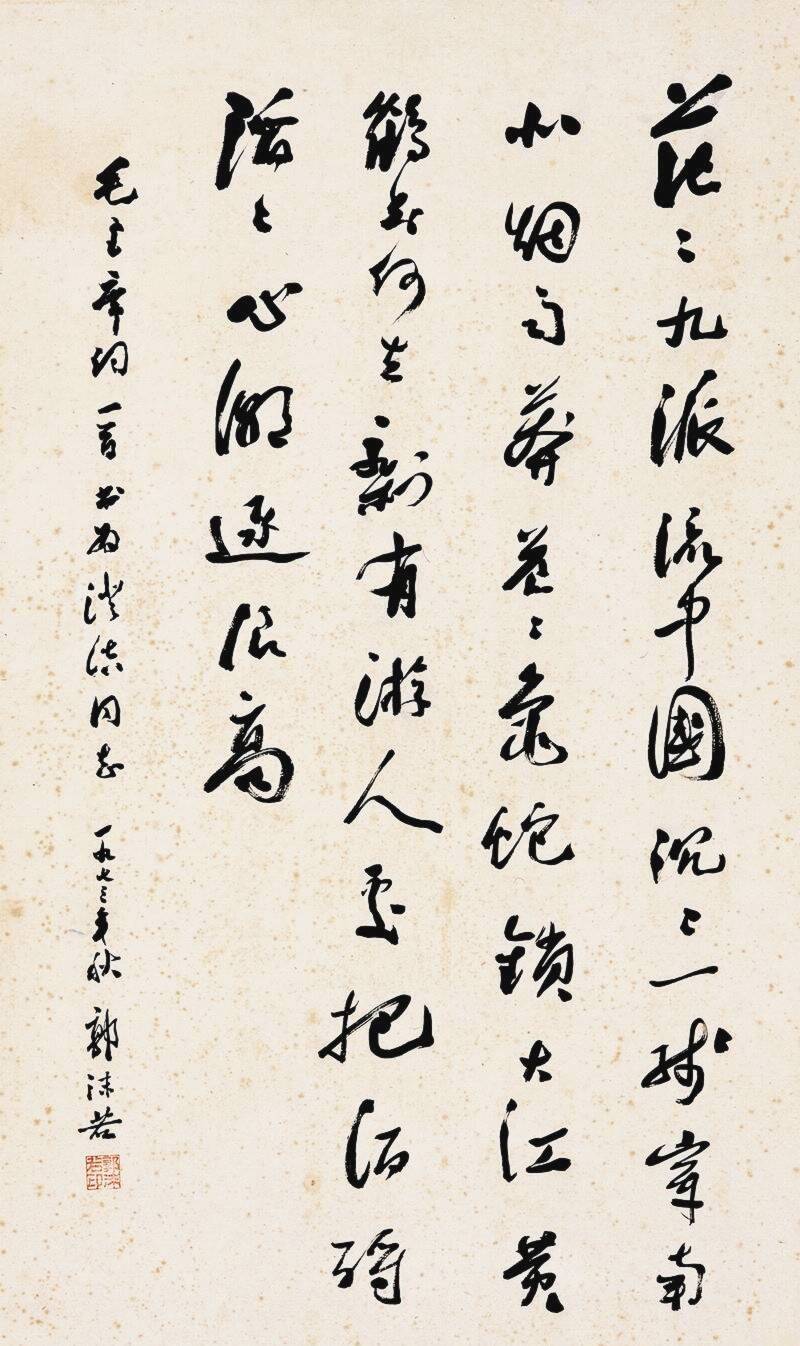 茫々九派流中國沉々一线穿南
北烟雨莽苍々龜蛇鎖大江黄
鶴知何去剩有游人處把酒酹
滔々心潮逐浪高
毛主席词一首书为澄同志一九七三年秋郭沫若
郭沫若印